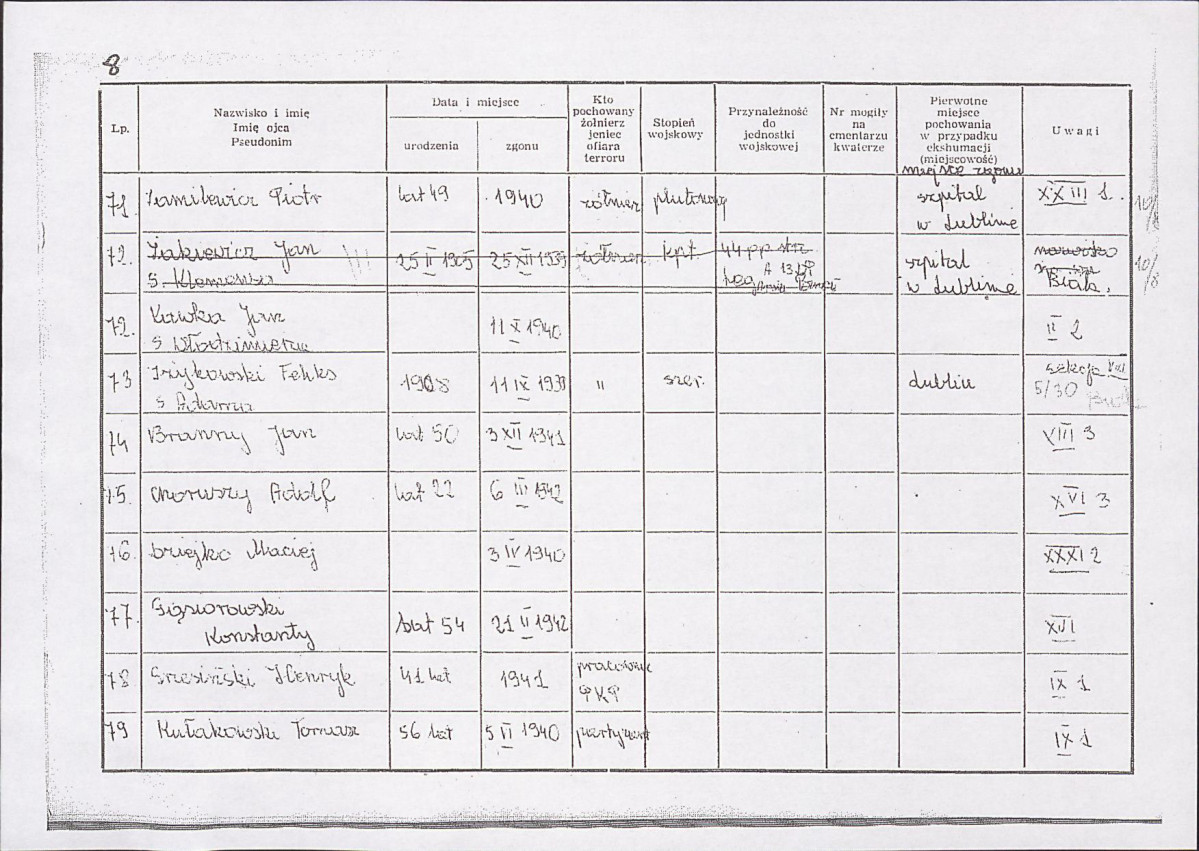 8
Lp.
Nazwisko i imię
Imię ojca
Pseudonim
Data i miejsce
urodzenia
zgonu
Kto
pochowany
żołnierz
jeniec
ofiara
terroru
Stopień
wojskowy
Przynależność
do
jednostki
wojskowej
Nr mogiły
na
cmentarzu
kwaterze
Pierwotne
miejsce
pochowania
w przypadku
ekshumacji
(miejscowość)
miejsce zgonu
Uwagi
71. Zamilewicz Piotr lat 49 1940 żołnierz plutonowy szpital
w Lublinie XXIII 1. 10/8
72. Żakiewicz Jan 25 II 1905 25 XII 1939 żołnierz kpt. 44 pp szpital
w Lublinie nazwisko
Biała, 10/8
s.
72. Kawka Jan 11 X 1940 II 2
s Włodzimierza
73 Irzykowski Feliks 1908 11 IX 1939 " szer. Lublin sekcja VIII
s Adama 5/30
74 Branny Jan lat 50 3 XII 1941 VIII 3
75. Chorwszy Adolf lat 22 6 III 1942 XVI 3
76. Dziejko Maciej 3 IV 1940 XXXI 2
77. Gąsiorowski
Konstanty lat 54 21 II 1942 XVI
78 Gresiński Henryk 41 lat 1941 pracownik
PKP IX 1
79 Kułakowski Tomasz 56 lat 5 VI 1940 partyzant IX 1